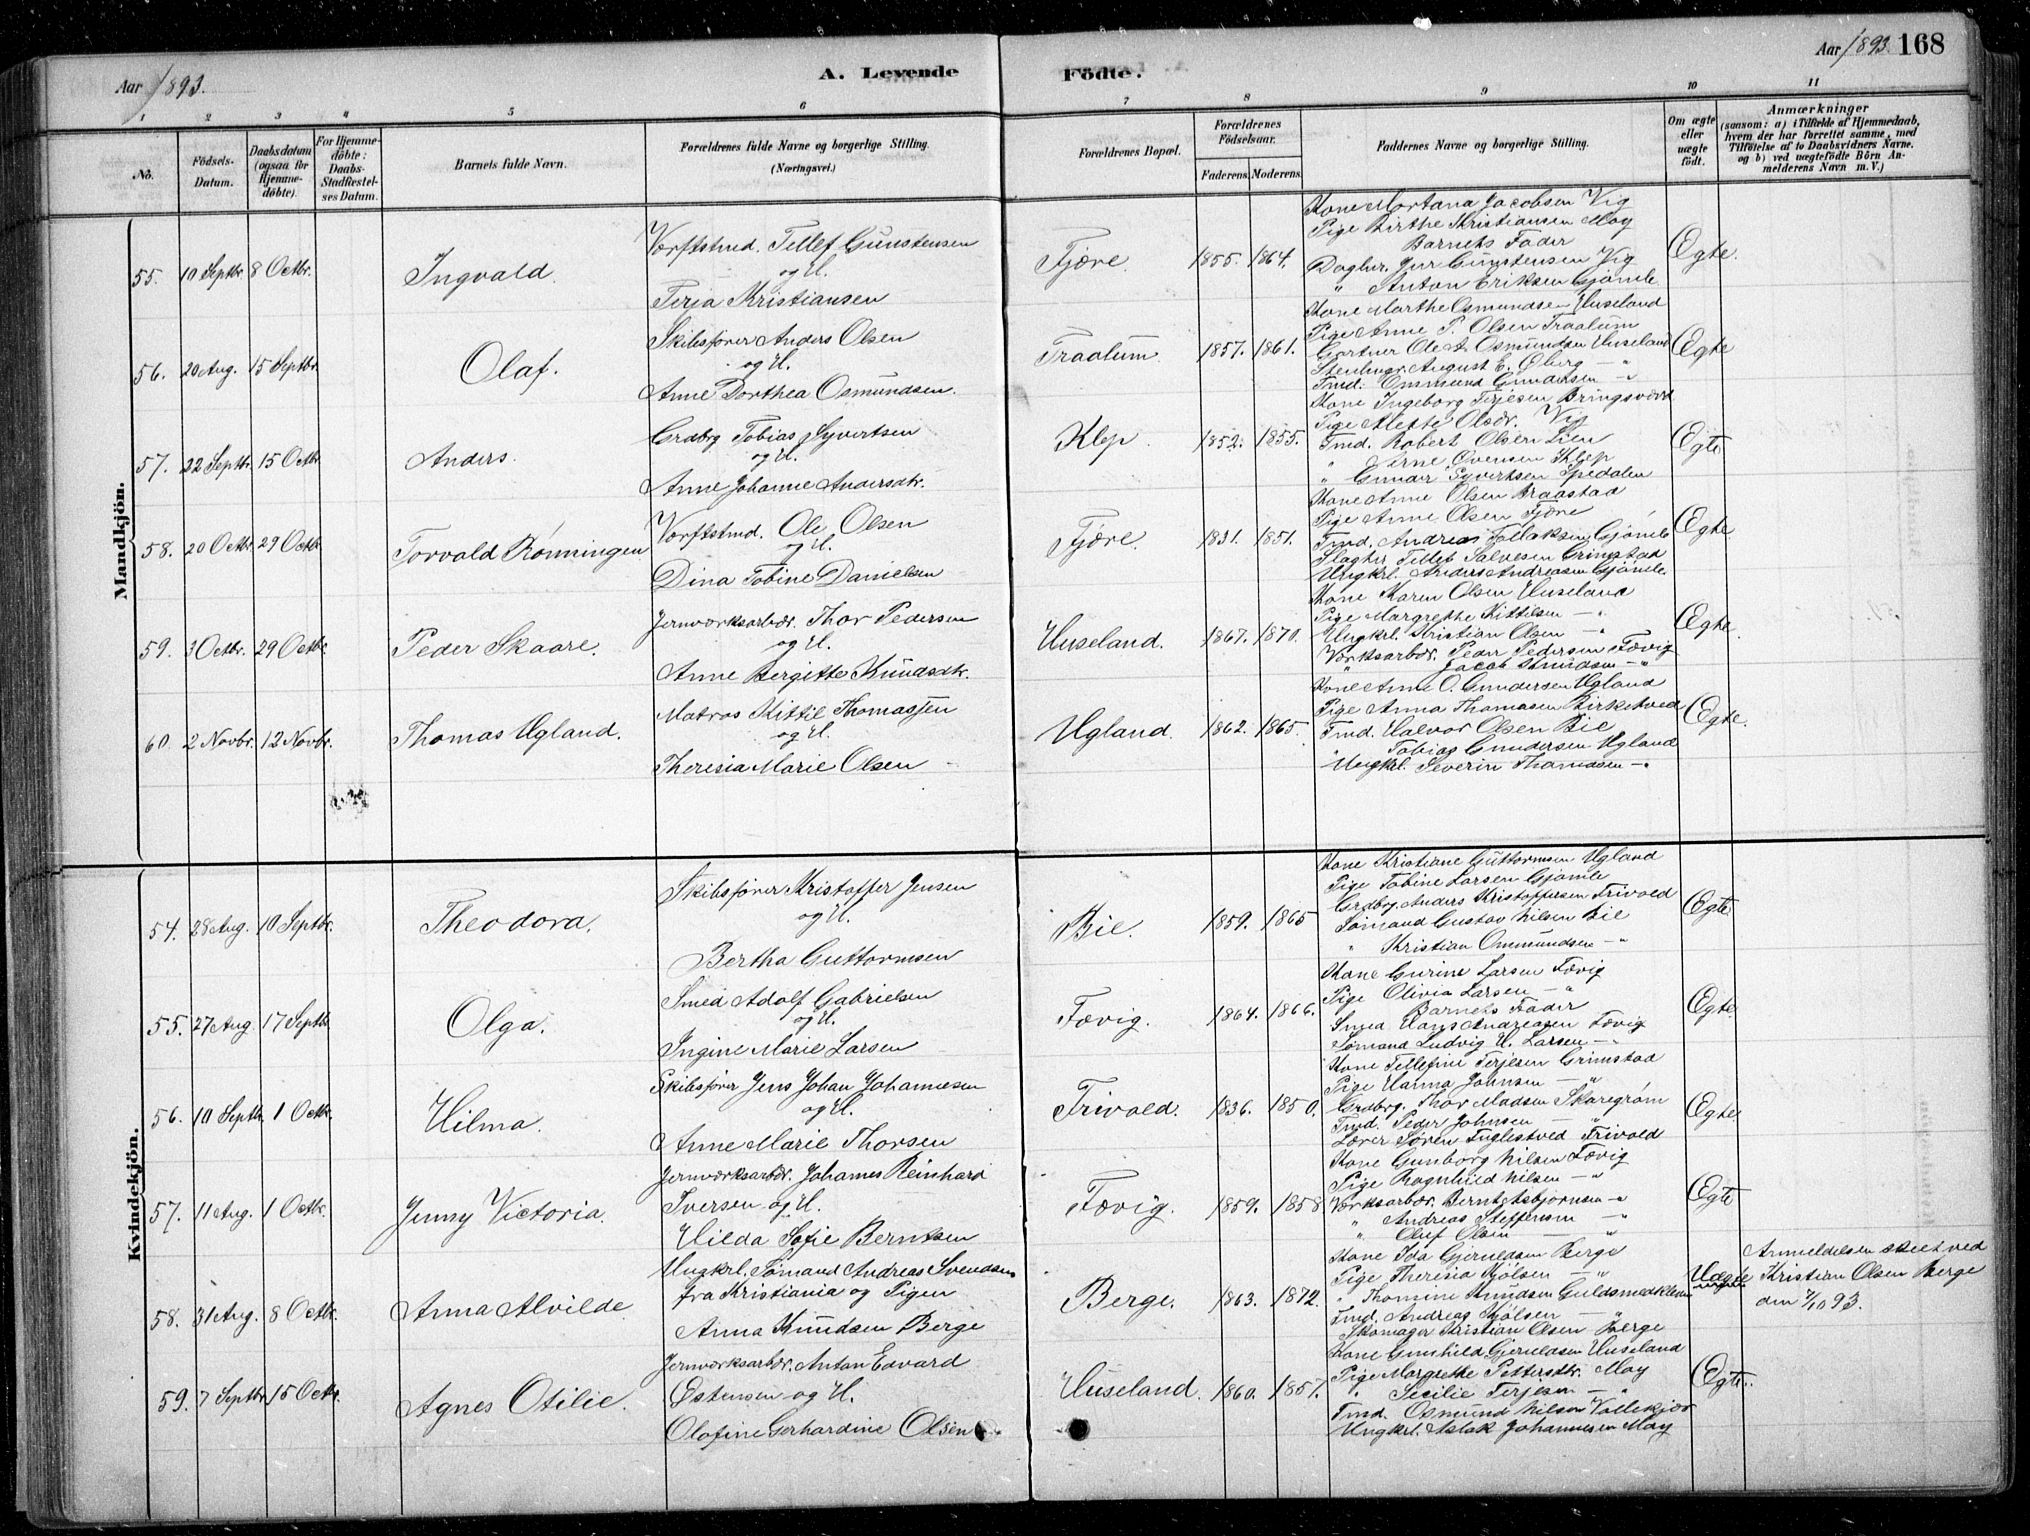 Aar 1893.
A. Levende
Födte.
Aar 1893. 168
1 2 3 4 5 6 7 8 9 10 11
No.
Födsels-
Datum.
Daabsdatum
(ogsaa for
Hjemme-
döbte).
For Hjemme-
döbte:
Daabs-
Stadfæstel-
ses Datum.
Barnets fulde Navn.
Forældrenes fulde Navne og borgerlige Stilling.
(Næringsvei.)
Forældrenes Bopæl.
Forældrenes
Födselsaar.
Faderens. Moderens.
Faddernes Navne og borgerlige Stilling.
Om ægte
eller
uægte
födt.
Anmærkninger
(saasom: a) i Tilfælde af Hjemmedaab,
hvem der har forrettet samme, med
Tilföielse af to Daabsvidners Navne.
og b) ved uægtefödte Börn An-
melderens Navn m. V.)
Mandkjön.
55. 10 Septbr. 8 Octbr. Ingvald.
Værftstmd. Tellef Gunstensen
og H.
Terja Kristiansen
Fjære. 1855. 1864.
Kone Martana Jacobsen Vig
Pige Birthe Kristiansen Moy
Barnets Fader
Dagbr. Jur Gunstensen Vig
" Anton Eriksen Gjömle
Ægte.
56. 20 Aug. 15 Septbr. Olaf.
Skibsfører Anders Olsen
og H.
Anne Dorthea Osmundsen.
Traalum. 1857. 1861.
Kone Marthe Osmundsen Huseland
Pige Anne P. Olsen Traalum
Gartner Ole A. Osmundsen Huseland
Stenhugr. August E. Øberg — "
Tmd. Osmund Gundersen — "
Ægte
57. 22 Septbr. 15 Octbr. Anders.
Grdbrg Tobias Syvertsen
og H.
Anne Johanne Andersdtr.
Klep. 1852. 1855.
Kone Ingeborg Terjesen Bringsværd
Pige Alette Olsdr. Vig
Tmd. Robert Olsen Lien
" Arne Evensen Klep
" Gunder Syvertsen Spedalen
Ægte
58. 20 Octbr. 29 Octbr. Torvald Rønningen
Værftstmd. Ole Olsen
og H.
Dina Tobine Danielsen
Fjære. 1831. 1851.
Kone Anne Olsen Braastad
Pige Anne Olsen Fjære
Tmd. Andreas Tellaksen Gjömle
Slagter Tellef Salvesen Grimstad
Ungkrl. Anders Andreasen Gjömle.
Ægte
59. 3 Octbr. 29 Octbr. Peder Skaare.
Jernværksarbdr. Thor Pedersen
og H.
Anne Bergitte Knudsdtr.
Huseland. 1867. 1870.
Kone Karen Olsen Huseland
Pige Margrethe Kittilsen — "
Ungkrl. Kristian Olsen — "
Værksarbdr. Peder Pedersen Fævig
" Jacob Knudsen — "
Ægte.
60. 2 Novbr. 12 Novbr. Thomas Ugland.
Matros Kittil Thomassen
og H.
Theresia Marie Olsen
Ugland. 1862. 1865.
Kone Anne O. Gundersen Ugland
Pige Anna Thomasen Birketved
Tmd. Halvor Olsen Bie
" Tobias Gundersen Ugland
Ungkrl. Severin Thomassen — "
Ægte.
Kvindekjön.
54. 28 Aug. 10 Septbr. Theodora.
Skibsfører Kristoffer Jensen
og H.
Bertha Guttormsen
Bie. 1859. 1865
Kone Kristiane Guttormsen Ugland
Pige Tobine Larsen Gjömle
Grdbrg. Anders Kristoffersen Trivold
Sømand Gustav Nilsen Bie
" Kristian Ommundsen — "
Ægte
55. 27 Aug. 17 Septbr. Olga.
Smed Adolf Gabrielsen
og H.
Ingine Marie Larsen
Fævig. 1864. 1866.
Kone Gurine Larsen Fævig
Pige Olivia Larsen — "
Barnets Fader
Smed Hans Andreasen Fævig
Sømand Ludvig H. Larsen — "
Ægte.
56. 10 Septbr. 1 Octbr. Hilma.
Skibsfører Jens Johan Johannesen
og H.
Anne Marie Thorsen
Trivold. 1836. 1850.
Kone Tellefine Terjesen Grimstad
Pige Hanna Johnsen — "
Grdbrg. Thor Madsen Skaregrøm
Tmd. Peder Johnsen "
Lærer Søren Fuglestved Trivold
Ægte.
57. 11 Aug. 1 Octbr. Jenny Victoria.
Jernværksarbdr. Johannes Reinhard
Iversen og H.
Hilda Sofie Berntsen
Fævig. 1859. 1858
Kone Gunborg Nilsen Fævig
Pige Ragnhild Nilsen — "
Værksarbdr. Bernt Asbjørnsen — "
" Andreas Steffensen — "
" Oluf Olsen — "
Ægte
58. 31 Aug. 8 Octbr. Anna Alvilde
Ungkrl. Sømand Andreas Svendsen
fra Kristiania og Pigen
Anna Knudsen Berge
Berge. 1863. 1872.
Kone Ida Gjeruldsen Berge
Pige Theresia Kjølsen — "
" Thomine Knudsen Guldsmedklem
Tmd. Andreas Kjølsen — "
Skomager Kristian Olsen Berge
Uægte
Anmeldelsen skeet ved
Kristian Olsen Berge
den 7/10 93.
59. 7 Septbr. 15 Octbr. Agnes Otilie.
Jernværksarbdr. Anton Edvard
Østensen og H.
Olofine Gerhardine Olsen
Huseland. 1860. 1857.
Kone Gunhild Gjeruldsen Huseland
Pige Margrethe Pettersdtr. Moy
" Secilie Terjesen — "
Tmd. Osmund Nilsen Vallekjær
Ungkrl. Aslak Johannesen Moy
Ægte.